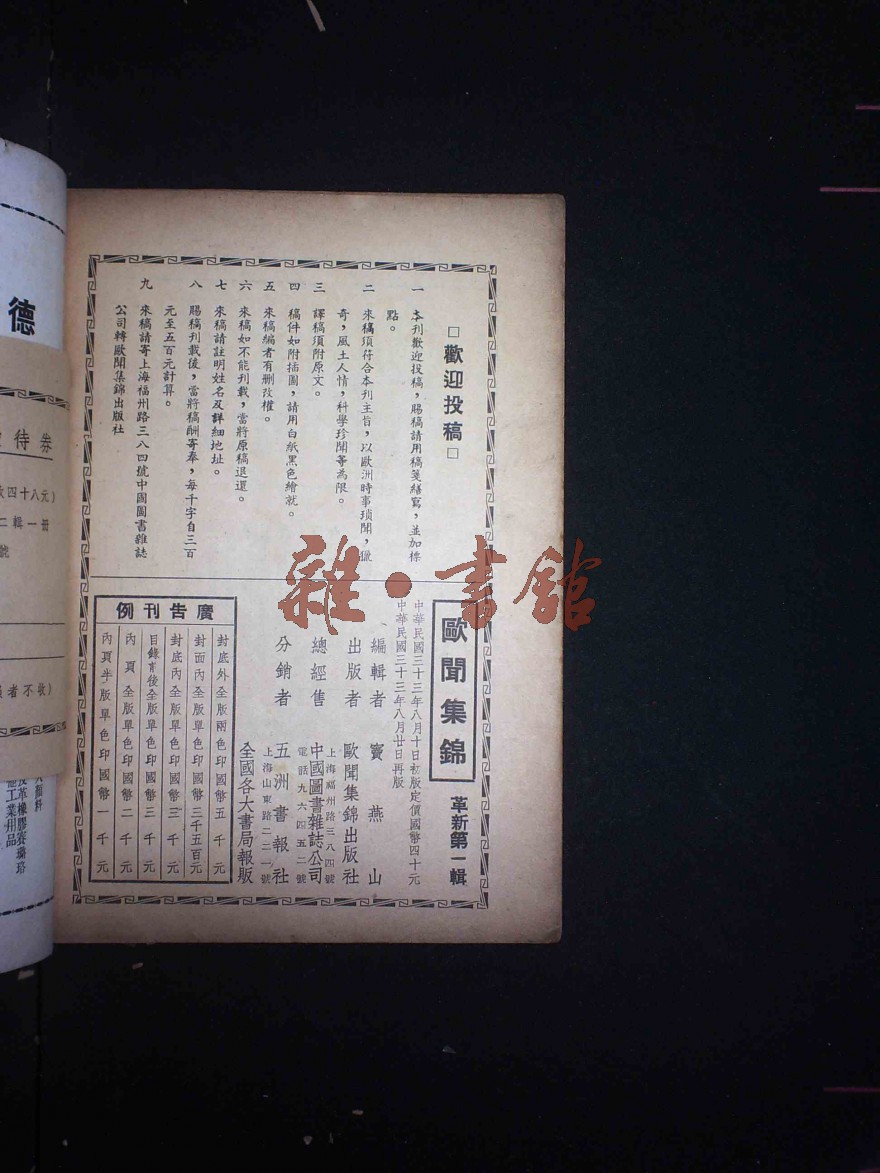 □歡迎投稿□
一 本刊歡迎投稿,賜稿請用稿箋繕寫,並加標
點。
二 來稿須符合本刊主旨,以歐洲時事瑣聞,
奇,風土人情,科學珍聞等為限。
三 譯稿須附原文。
四 稿件如附插圖,請用白紙黑色繪就。
五 來稿編者有刪改權。
六 來稿如不能刊載,當將原稿退還。
七 來稿請註明姓名及詳細地址。
八 賜稿刊載後,當將稿酬寄奉,每千字自三百
元至五百元計算。
九 來稿請寄上海福州路三八四號中國圖書雜誌
公司轉歐聞集錦出版社
歐聞集錦 革新第一輯
中華民國三十三年八月十日初版定價國幣四十元
中華民國三十三年八月廿日再版
編輯者 竇燕山
出版者 歐聞集錦出版社
上海福州路三八四號
總經售 中國圖書雜誌公司
電話九六四五二號
分銷者 五洲書報社
上海山東路二二一號
全國各大書局報販
廣告刊例
封底外全版兩色印國幣五千元
封面內全版單色印國幣三千五百元
封底內全版單色印國幣三千元
目錄前後全版單色印國幣三千元
內頁全版單色印國幣二千元
內頁半版單色印國幣一千元
雜·書館
德
待券
四十八元)
二輯一冊
號
者不收)
顏料
皮革橡膠賽璐珞
工業用品